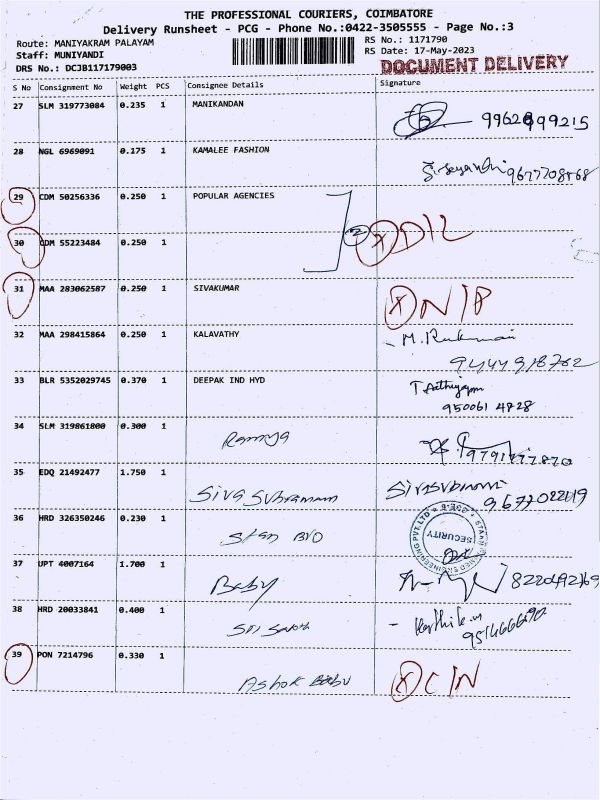 THE PROFESSIONAL COURIERS, COIMBATORE
Delivery Runsheet - PCG - Phone No.:0422-3505555 - Page No.:3
Route: MANIYAKRAM PALAYAM
RS No.: 1171790
Staff: MUNIYANDI
RS Date: 17-May-2023
DRS No.: DCJB117179003
DOCUMENT DELIVERY
S No Consignment No Weight PCS Consignee Details Signature
27 SLM 319773084 0.235 1 MANIKANDAN
28 NGL 6969091 0.175 1 KAMALEE FASHION
9677708568
29 CDM 50256336 0.250 1 POPULAR AGENCIES
30 CDM 55223484 0.250 1 2 X D/L
31 MAA 283062587 0.250 1 SIVAKUMAR X N/P
32 MAA 298415864 0.250 1 KALAVATHY - M. Rukmani
9444918762
33 BLR 5352029745 0.370 1 DEEPAK IND HYD
950061 4828
34 SLM 319861800 0.300 1 Ramya
35 EDQ 21492477 1.750 1 Siva Subramani
36 HRD 326350246 0.230 1
SECURITY
37 UPT 4007164 1.700 1 Baby
38 HRD 20033841 0.400 1 - Karthik.m
39 PON 7214796 0.330 1 Ashok Babu X C/N